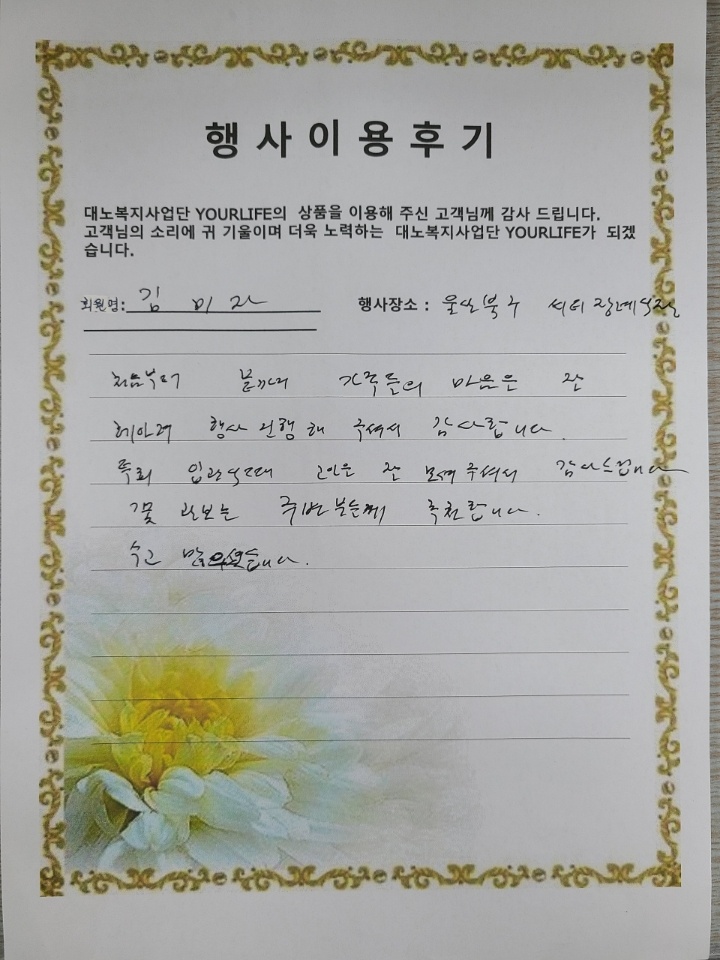 행사이용후기
대노복지사업단 YOURLIFE의 상품을 이용해 주신 고객님께 감사 드립니다.
고객님의 소리에 귀 기울이며 더욱 노력하는 대노복지사업단 YOURLIFE가 되겠
습니다.
회원명: 김미자 행사장소 : 울산북구 시티장례식장
처음부터 끝까지 가족들의 마음은 잘
헤아려 행사 진행해 주셔서 감사합니다.
특히 입관식때 고인은 잘 모셔주셔서 감사드립니다
꽃 주변분들께 추천합니다.
수고 많으셨습니다.